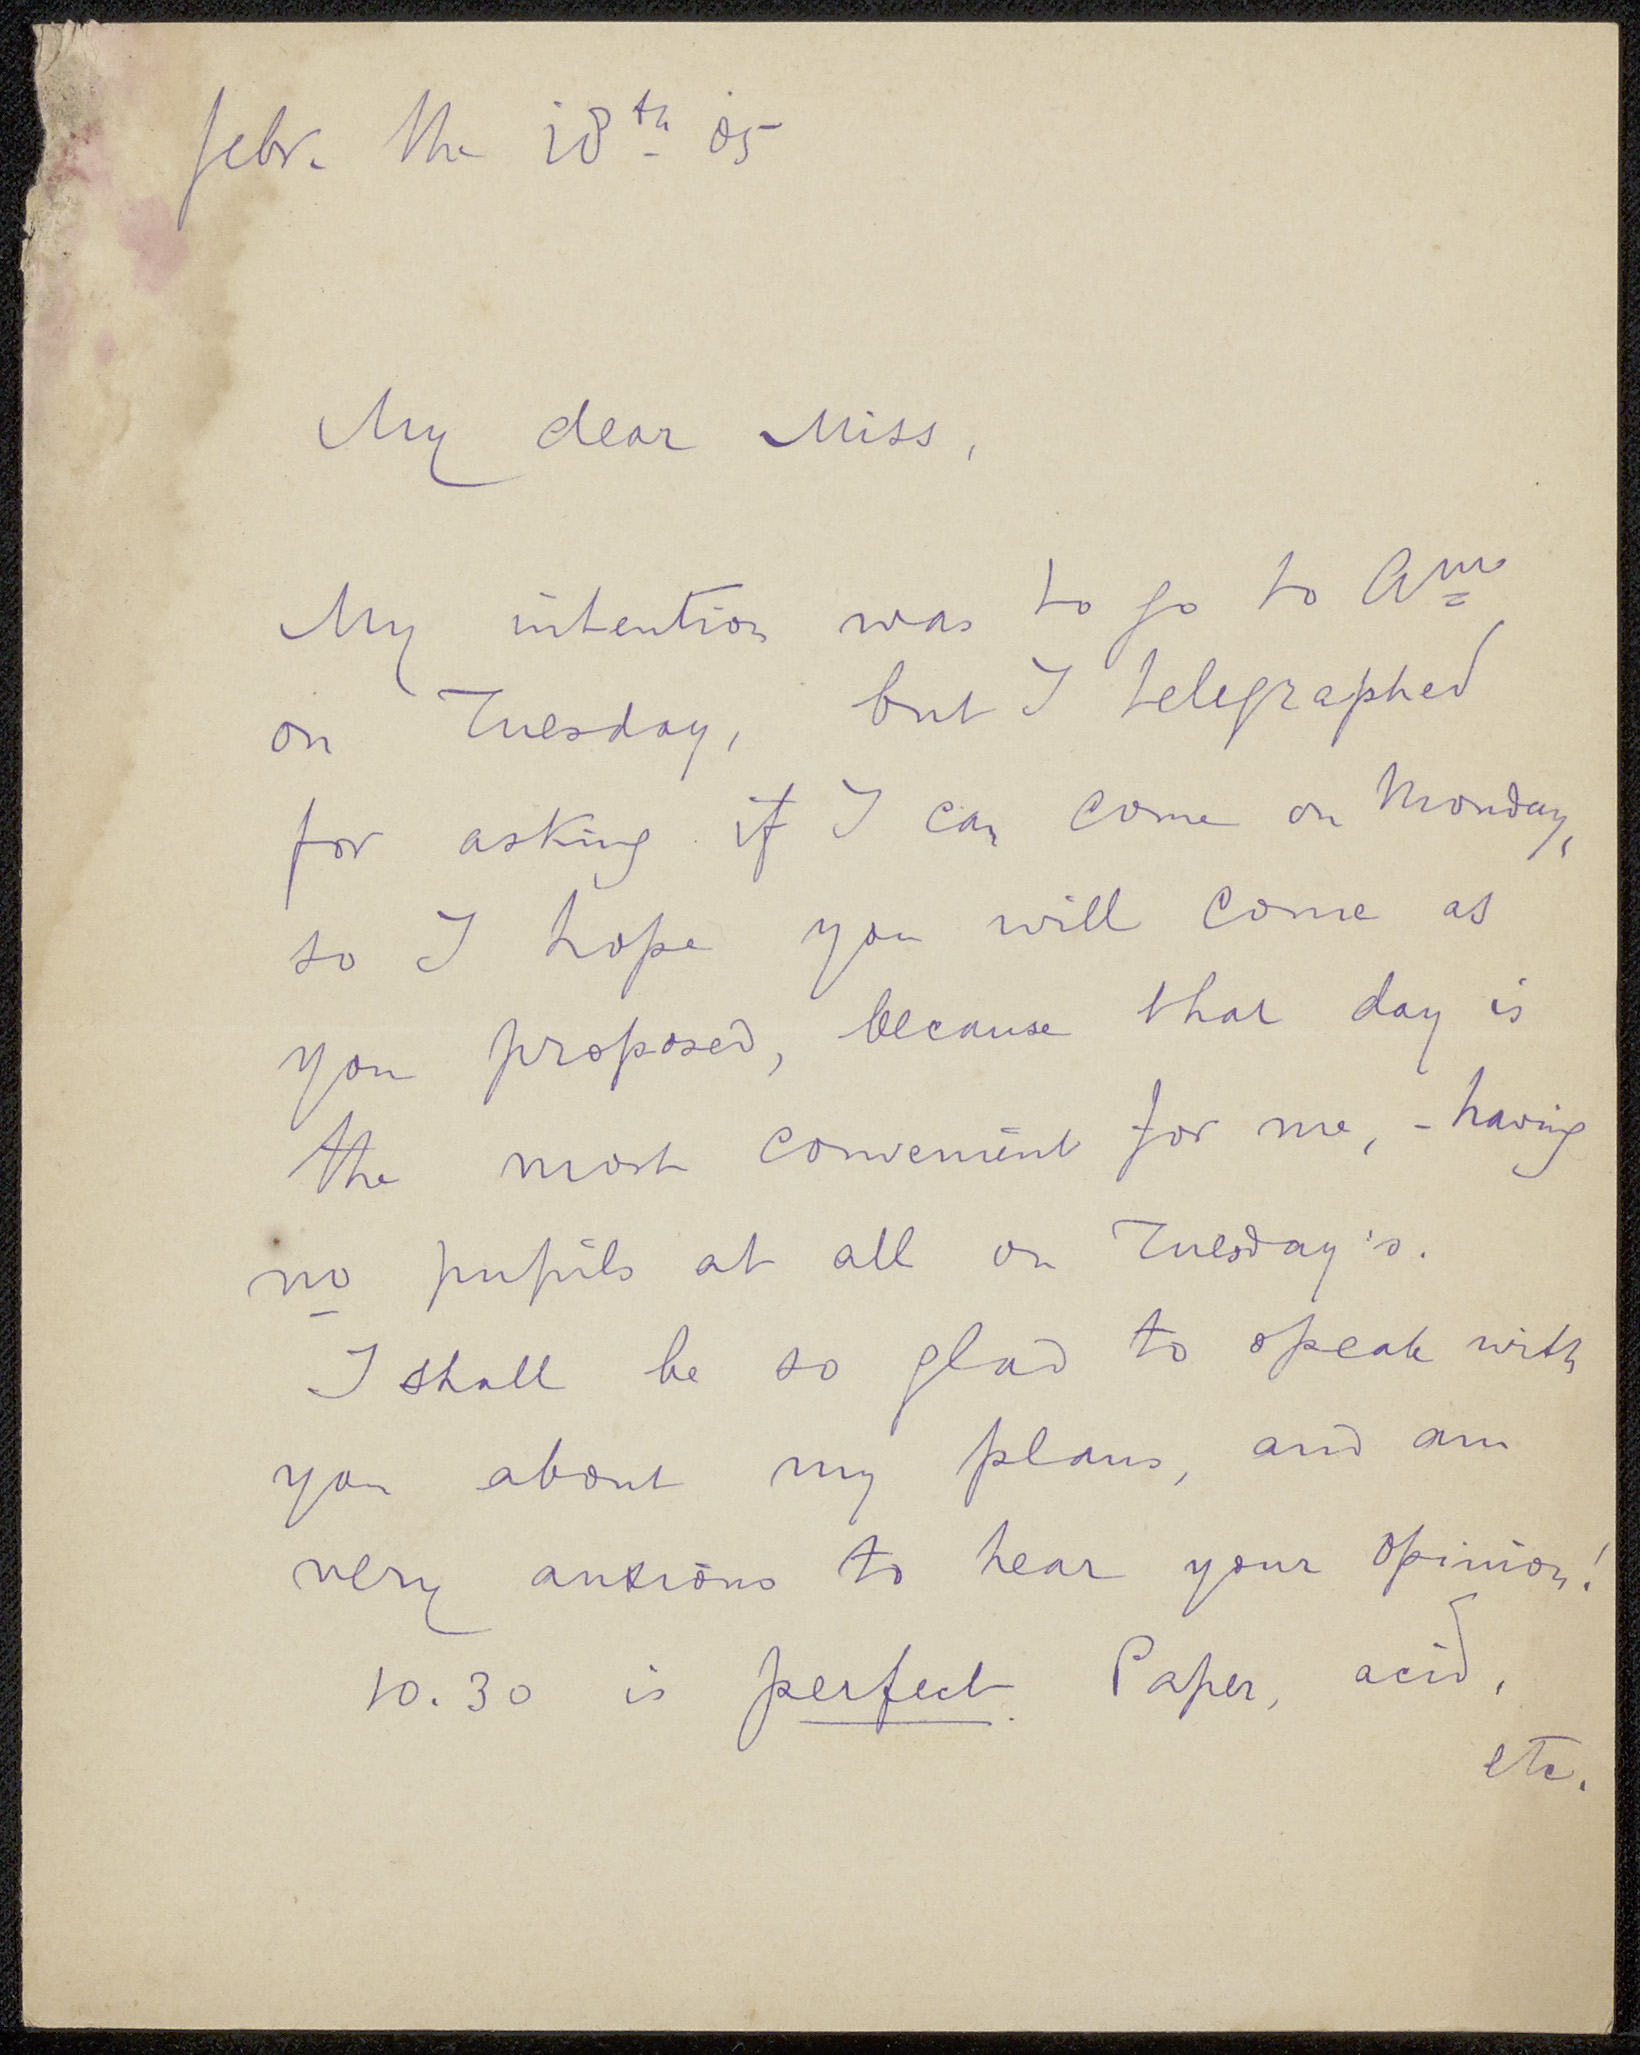 febr. the 18th 05
My dear Miss,
My intention was to go to Am
on Tuesday, but I telegraphed
for asking if I can come on Monday,
so I hope you will come as
you proposed, because that day is
the most convenient for me, - having
no pupils at all on Tuesday's.
I shall be so glad to speak with
you about my plans, and am
very anxious to hear your opinion!
10.30 is perfect. Paper, acid,
etc.